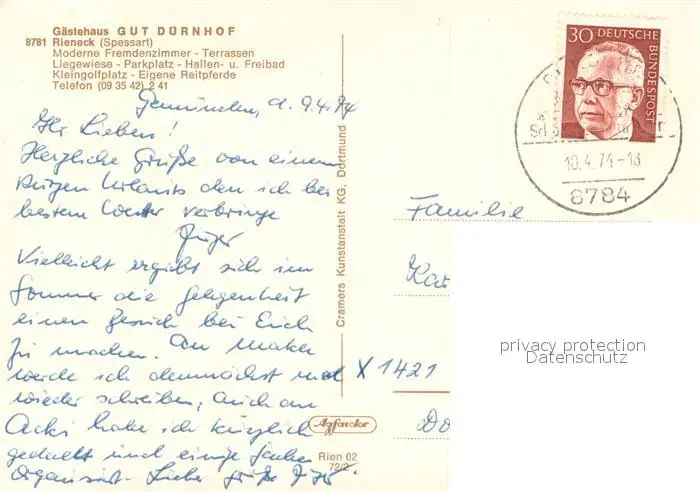 Gästehaus GUT DÜRNHOF
8781 Rieneck (Spessart)
Moderne Fremdenzimmer - Terrassen
Liegewiese - Parkplatz - Hallen- u. Freibad
Kleingolfplatz - Eigene Reitpferde
Telefon (0 95 42) 2 41
Gemünden, d. 9.4.74
Ihr Lieben!
Herzliche Grüße von einem
kurzen Urlaub, den ich bei
bestem Wetter verbringe
Vielleicht ergibt sich im
Sommer die Gelegenheit
einen Besuch bei Euch
zu machen. An
werde ich demnächst mal
wieder schreiben, auch an
habe ich kürzlich
gedacht und einige Sachen
organisiert. Liebe Grüße
Cramers Kunstanstalt KG, Dortmund
30 DEUTSCHE
BUNDESPOST
10.4.74-18
8784
Familie
Kar
X 1421
Do
Agfacolor
Rien 02
72/2
privacy protection
Datenschutz